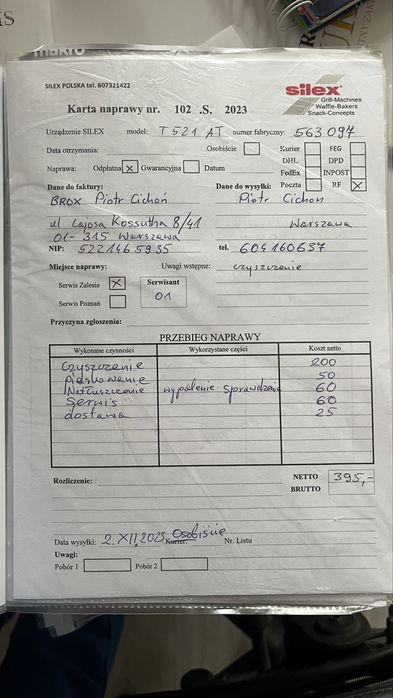 makro
SILEX POLSKA tel. 607321422
silex
Grill-Machines
Waffle-Bakers
Snack-Concepts
Karta naprawy nr. 102 .S. 2023
Urządzenie SILEX model: T 521 AT numer fabryczny: 563097
Data otrzymania: Osobiście Kurier FEG
DHL DPD
Naprawa: Odpłatna X Gwarancyjna Datum FedEx INPOST
Poczta RF X
Dane do faktury: Dane do wysyłki:
BROX Piotr Cichoń Piotr Cichoń
ul Lajosa Kossutha 8/41 Warszawa
01-315 Warszawa
NIP: 5221465935 tel. 604160637
Miejsce naprawy: Uwagi wstępne: czyszczenie
Serwis Zalesie X Serwisant
01
Serwis Poznań
Przyczyna zgłoszenia:
PRZEBIEG NAPRAWY
Wykonane czynności Wykorzystane części Koszt netto
czyszczenie 200
Piaskowanie 50
Natłuszczenie wypalenie sprawdzenie 60
Serwis 60
dostawa 25
Rozliczenie: NETTO 395,-
BRUTTO
Data wysyłki: 2.XII.2023 Osobiście
Kurier: Nr. Listu
Uwagi:
Pobór 1 Pobór 2